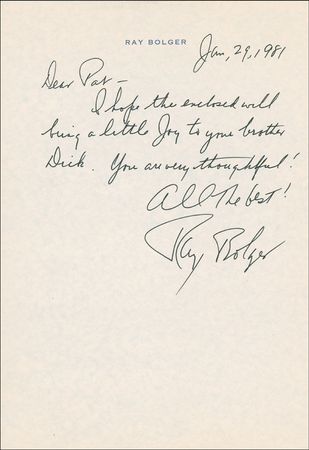 RAY BOLGER
Jan, 29, 1981
Dear Pat -
I hope the enclosed will
bring a little Joy to your brother
Dick. You are very thoughtful!
All the best!
Ray Bolger